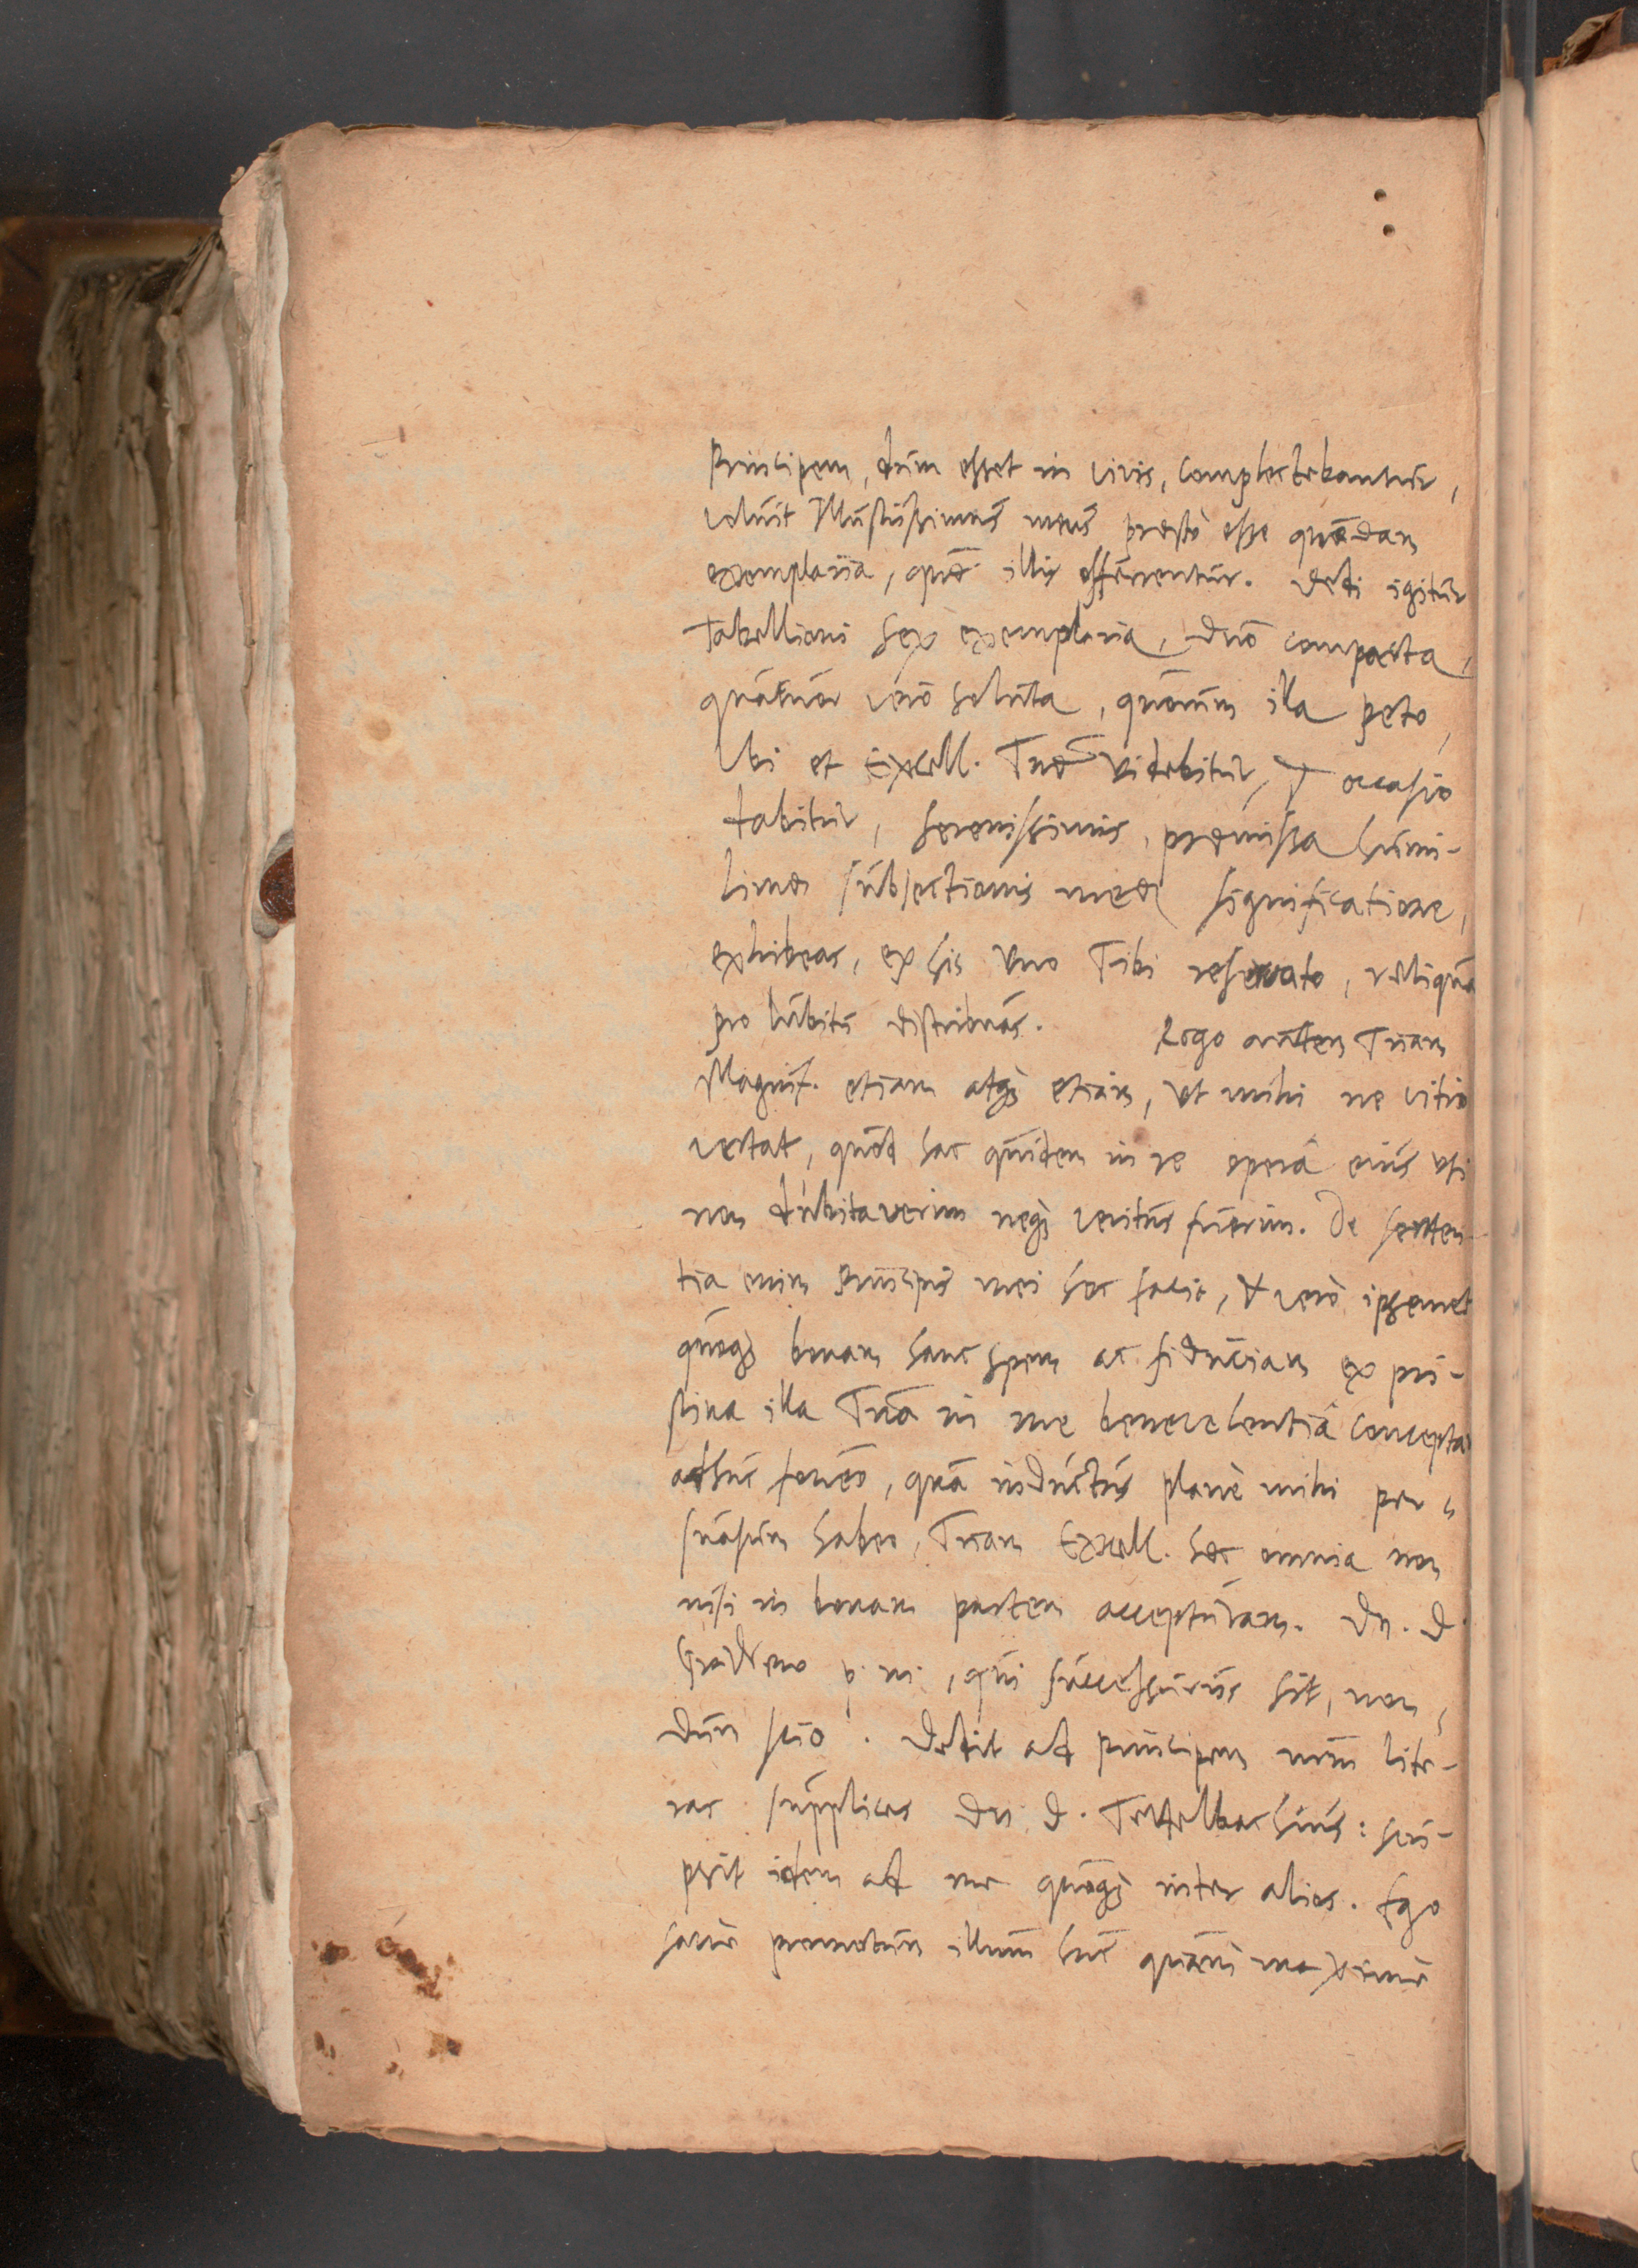 Principem, dum esset in vivis, complectebantur,
voluit Illustrissimus meus præsto esse quædam
exemplaria, quæ illis offerrentur. Dedi igitur
Tabellioni sex exemplaria, duo compacta,
quatuor verò soluta, quorum illa peto,
Ubi et Excell. Tuæ videbitur, & occasio
dabitur, Serenissimis, præmissa humi-
limæ subjectionis meæ significatione,
exhibeas, ex his uno Tibi reservato, reliqua
pro lubitu distribuas. Rogo autem Tuam
Magnif. etiam atq; etiam, ut mihi ne vitio
vertat, quòd hac quidem in re operâ ejus uti
non dubitaverim neq; veritus fuerim. De senten-
tia enim Principis mei hoc facio, & verò ipsemet
quoq; bonam hanc spem ac fiduciam ex pri-
stina illa Tuâ in me benevolentiâ conceptam
adhuc foveo, quâ inductus planè mihi per-
suasum habeo, Tuam Excell. hæc omnia non
nisi in bonam partem accepturam. Dn. D.
p. m., qui successurus sit, non-
dum scio. Dedit ad principem meum lite-
ras supplices Dn. D. Tettelbachius: scri-
psit idem ad me quoq; inter alios. Ego
sanè promotum illum huc quàm maximè